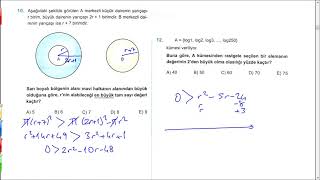 10. Aşağıdaki şekilde görülen A merkezli büyük dairenin yarıçapı
r birim, büyük dairenin yarıçapı 2r + 1 birimdir. B merkezli dairenin
yarıçapı ise r + 7 birimdir.
A
r
B
Sarı boyalı bölgenin alanı mavi halkanın alanından büyük
olduğuna göre, r'nin alabileceği en büyük tam sayı değeri
kaçtır?
A) 5 B) 6 C) 7 D) 8 E) 9
π(r+7)² > π(2r+1)² - πr²
r²+14r+49 > 3r²+4r+1
0 > 2r²-10r-48
12. A = {log1, log2, log3, ..., log250}
kümesi veriliyor.
Buna göre, A kümesinden rastgele seçilen bir elemanın
değerinin 2'den büyük olma olasılığı yüzde kaçtır?
A) 40 B) 50 C) 60 D) 70 E) 80
0 > r²-5r-24
r -8
r +3